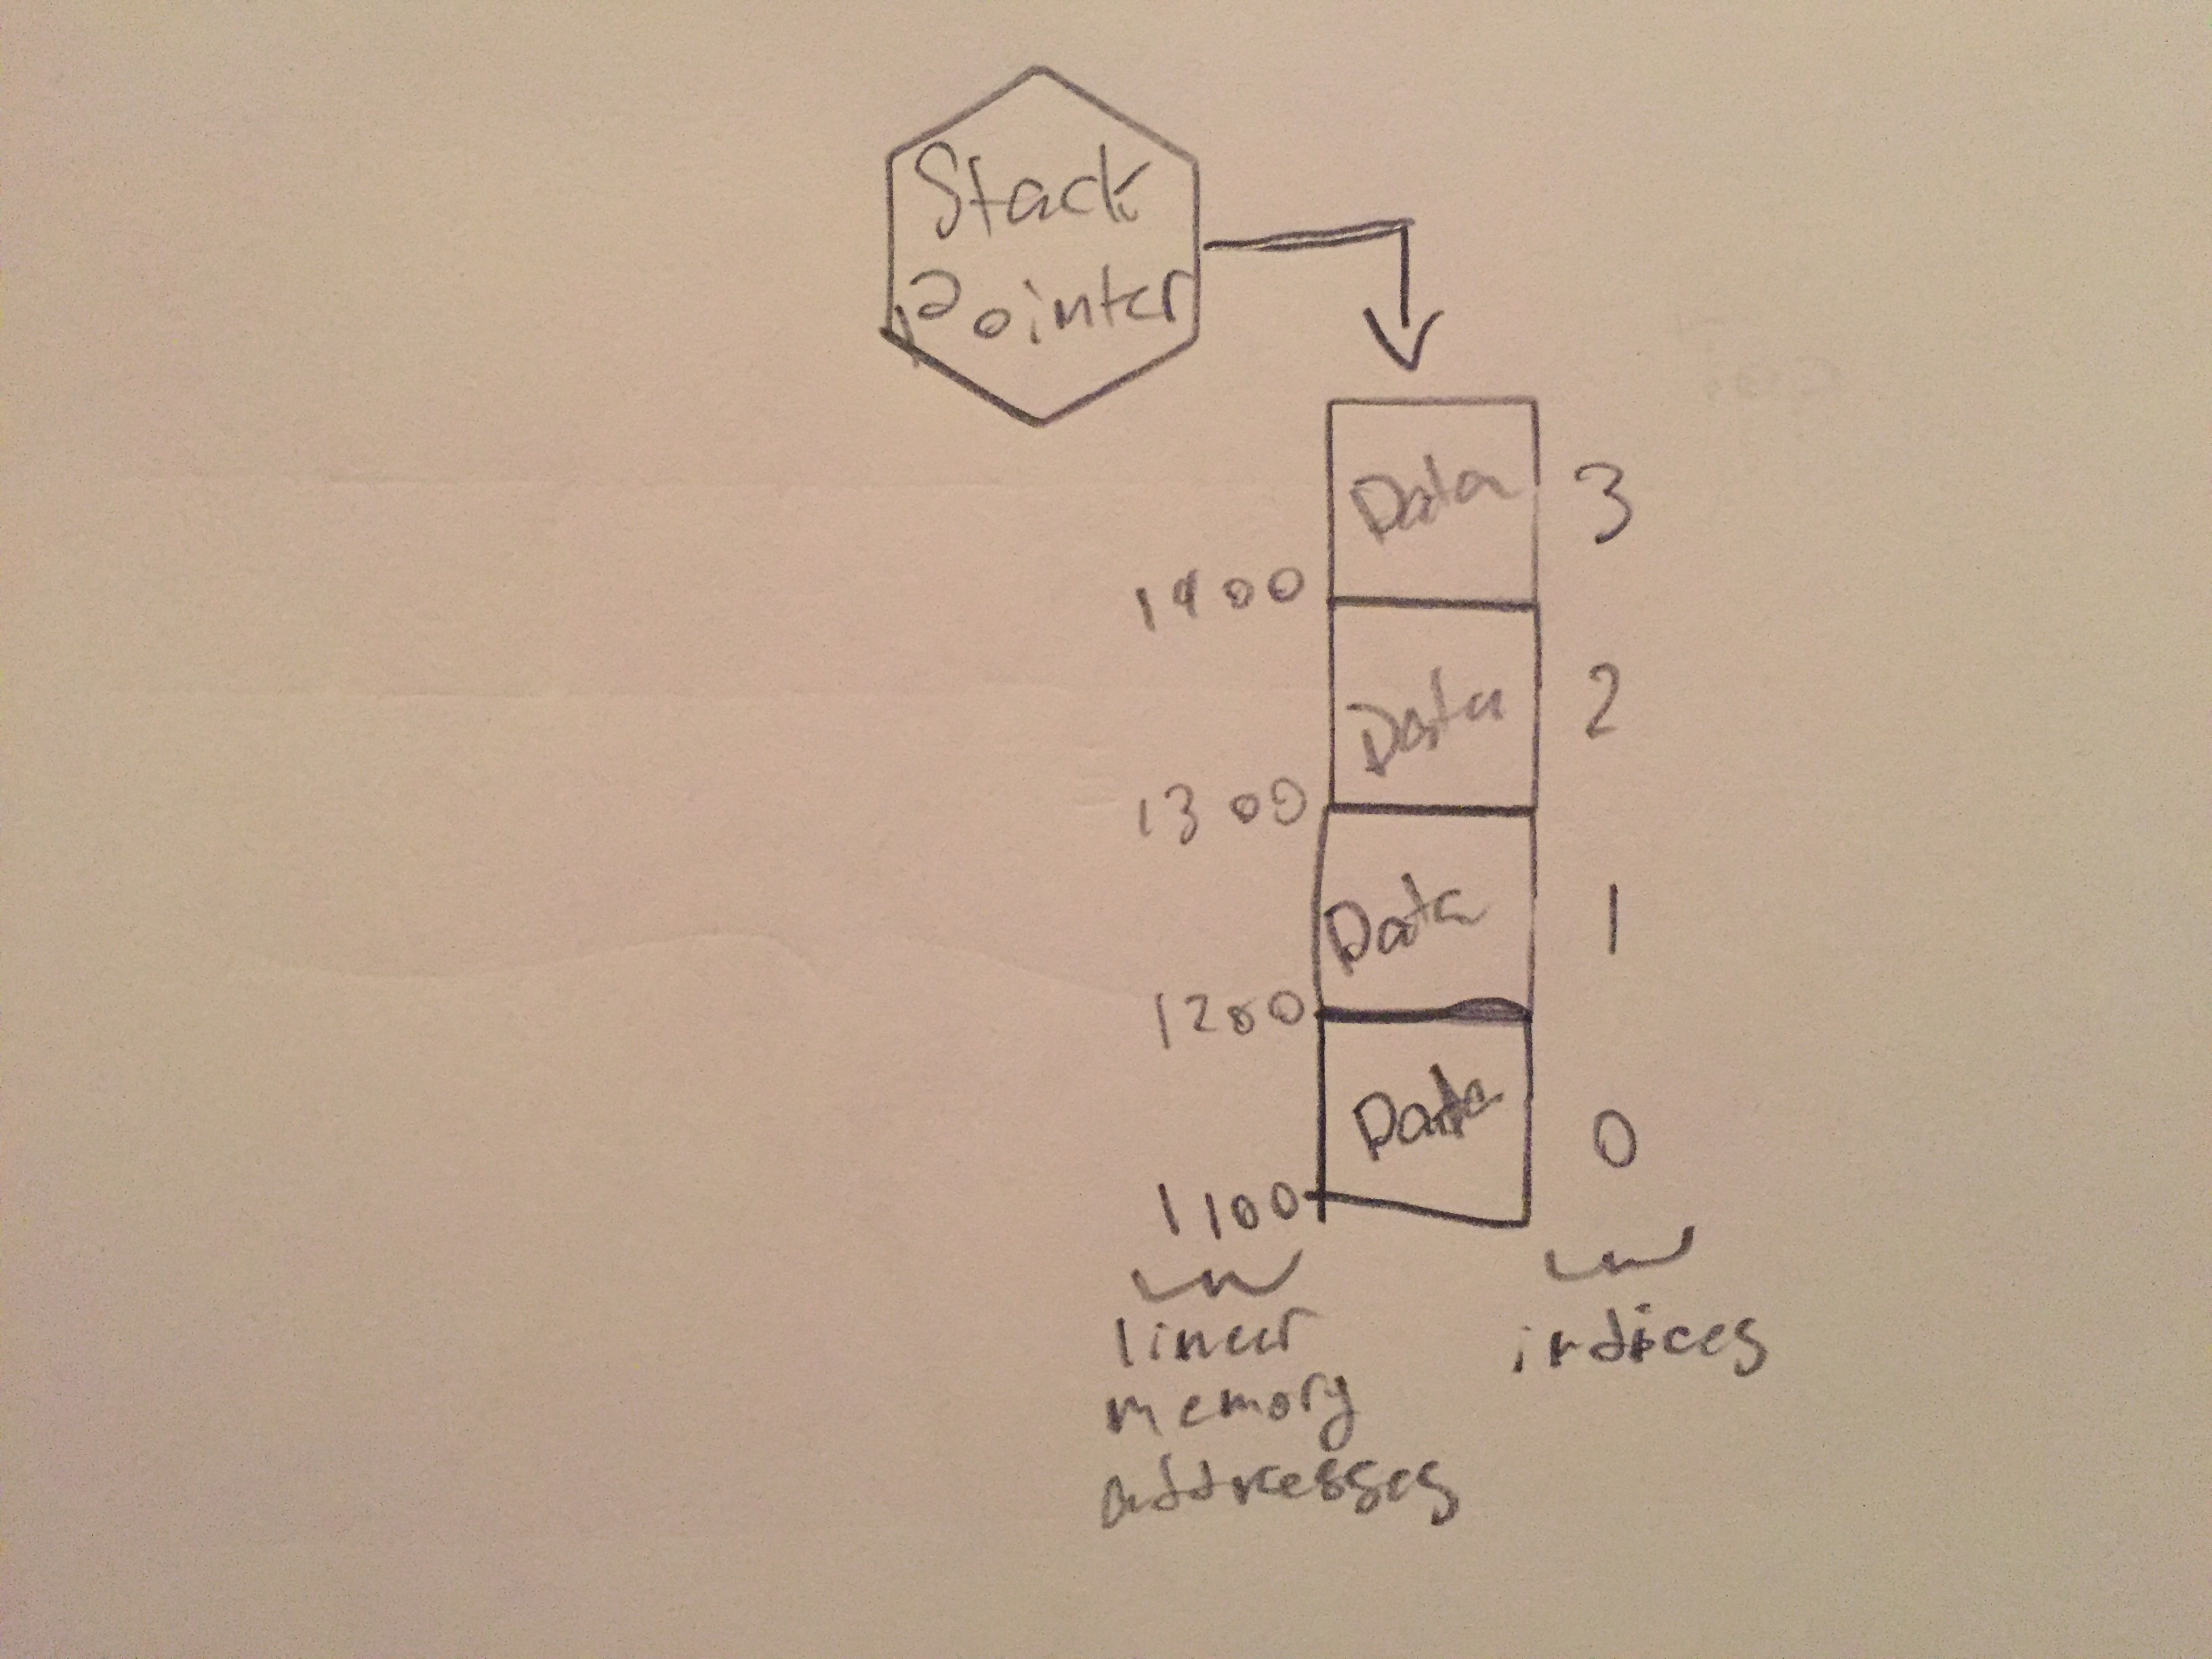 Stack
Pointer
Data 3
1400
Data 2
1300
Data 1
1200
Data 0
1100
linear
memory
addresses
indices